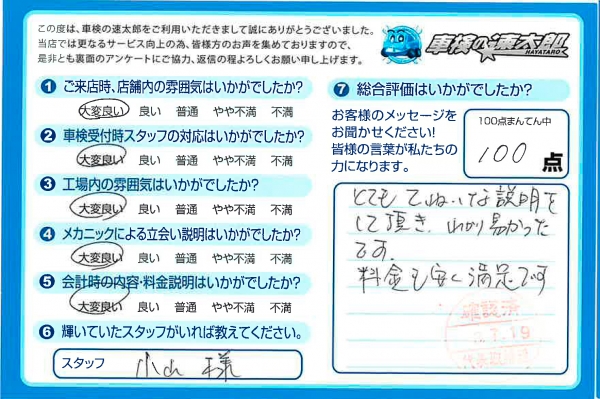 この度は、車検の速太郎をご利用いただきまして誠にありがとうございました。
当店では更なるサービス向上の為、皆様方のお声を集めておりますので、
是非とも裏面のアンケートにご協力、返信の程よろしくお願い申し上げます。
車検の速太郎
HAYATARO
1 ご来店時、店舗内の雰囲気はいかがでしたか?
大変良い 良い 普通 やや不満 不満
2 車検受付時スタッフの対応はいかがでしたか?
大変良い 良い 普通 やや不満 不満
3 工場内の雰囲気はいかがでしたか?
大変良い 良い 普通 やや不満 不満
4 メカニックによる立会い説明はいかがでしたか?
大変良い 良い 普通 やや不満 不満
5 会計時の内容・料金説明はいかがでしたか?
大変良い 良い 普通 やや不満 不満
6 輝いていたスタッフがいれば教えてください。
スタッフ 小山 様
7 総合評価はいかがでしたか?
お客様のメッセージを
お聞かせください!
皆様の言葉が私たちの
力になります。
100点まんてん中
100 点
とても ていねいな説明を
して頂き、わかり易かった
です。
料金も安く満足です
確認済
7.19